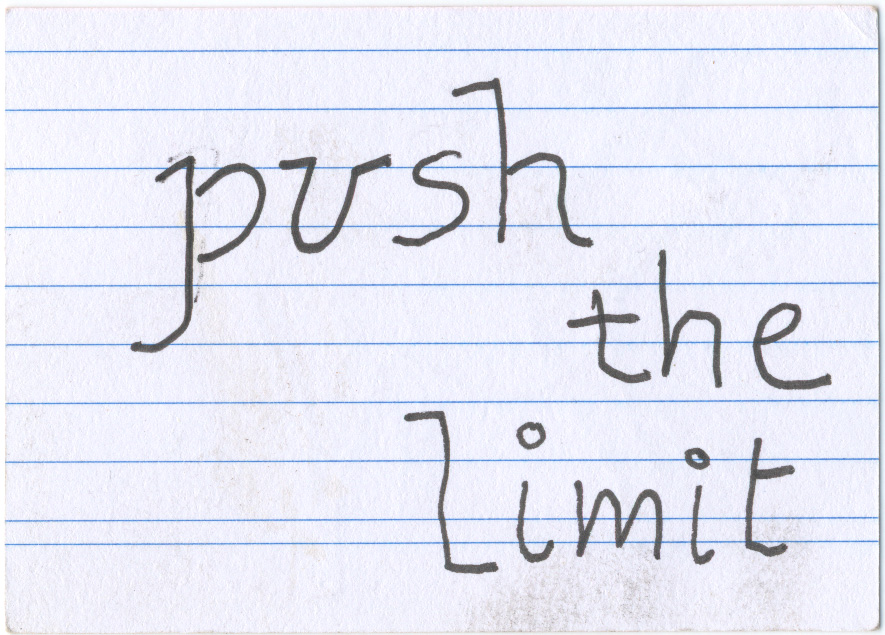 push
the
limit